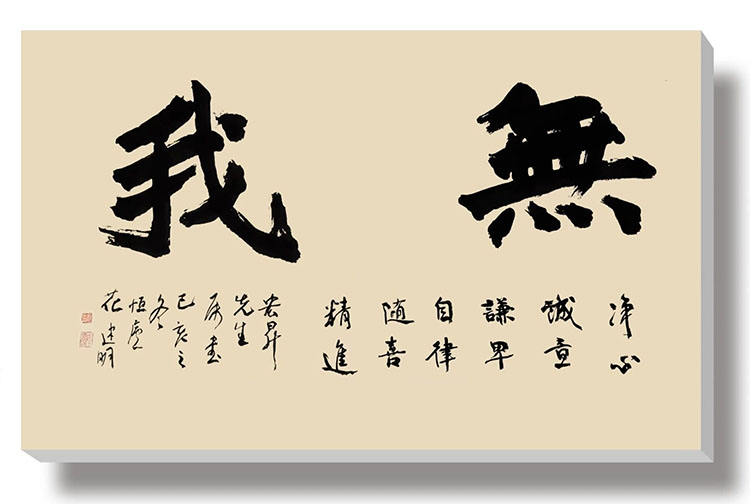 無我
净心
誠意
謙卑
自律
随喜
精進
宏昇
先生
属書
己亥之
冬
恒廬
花建明